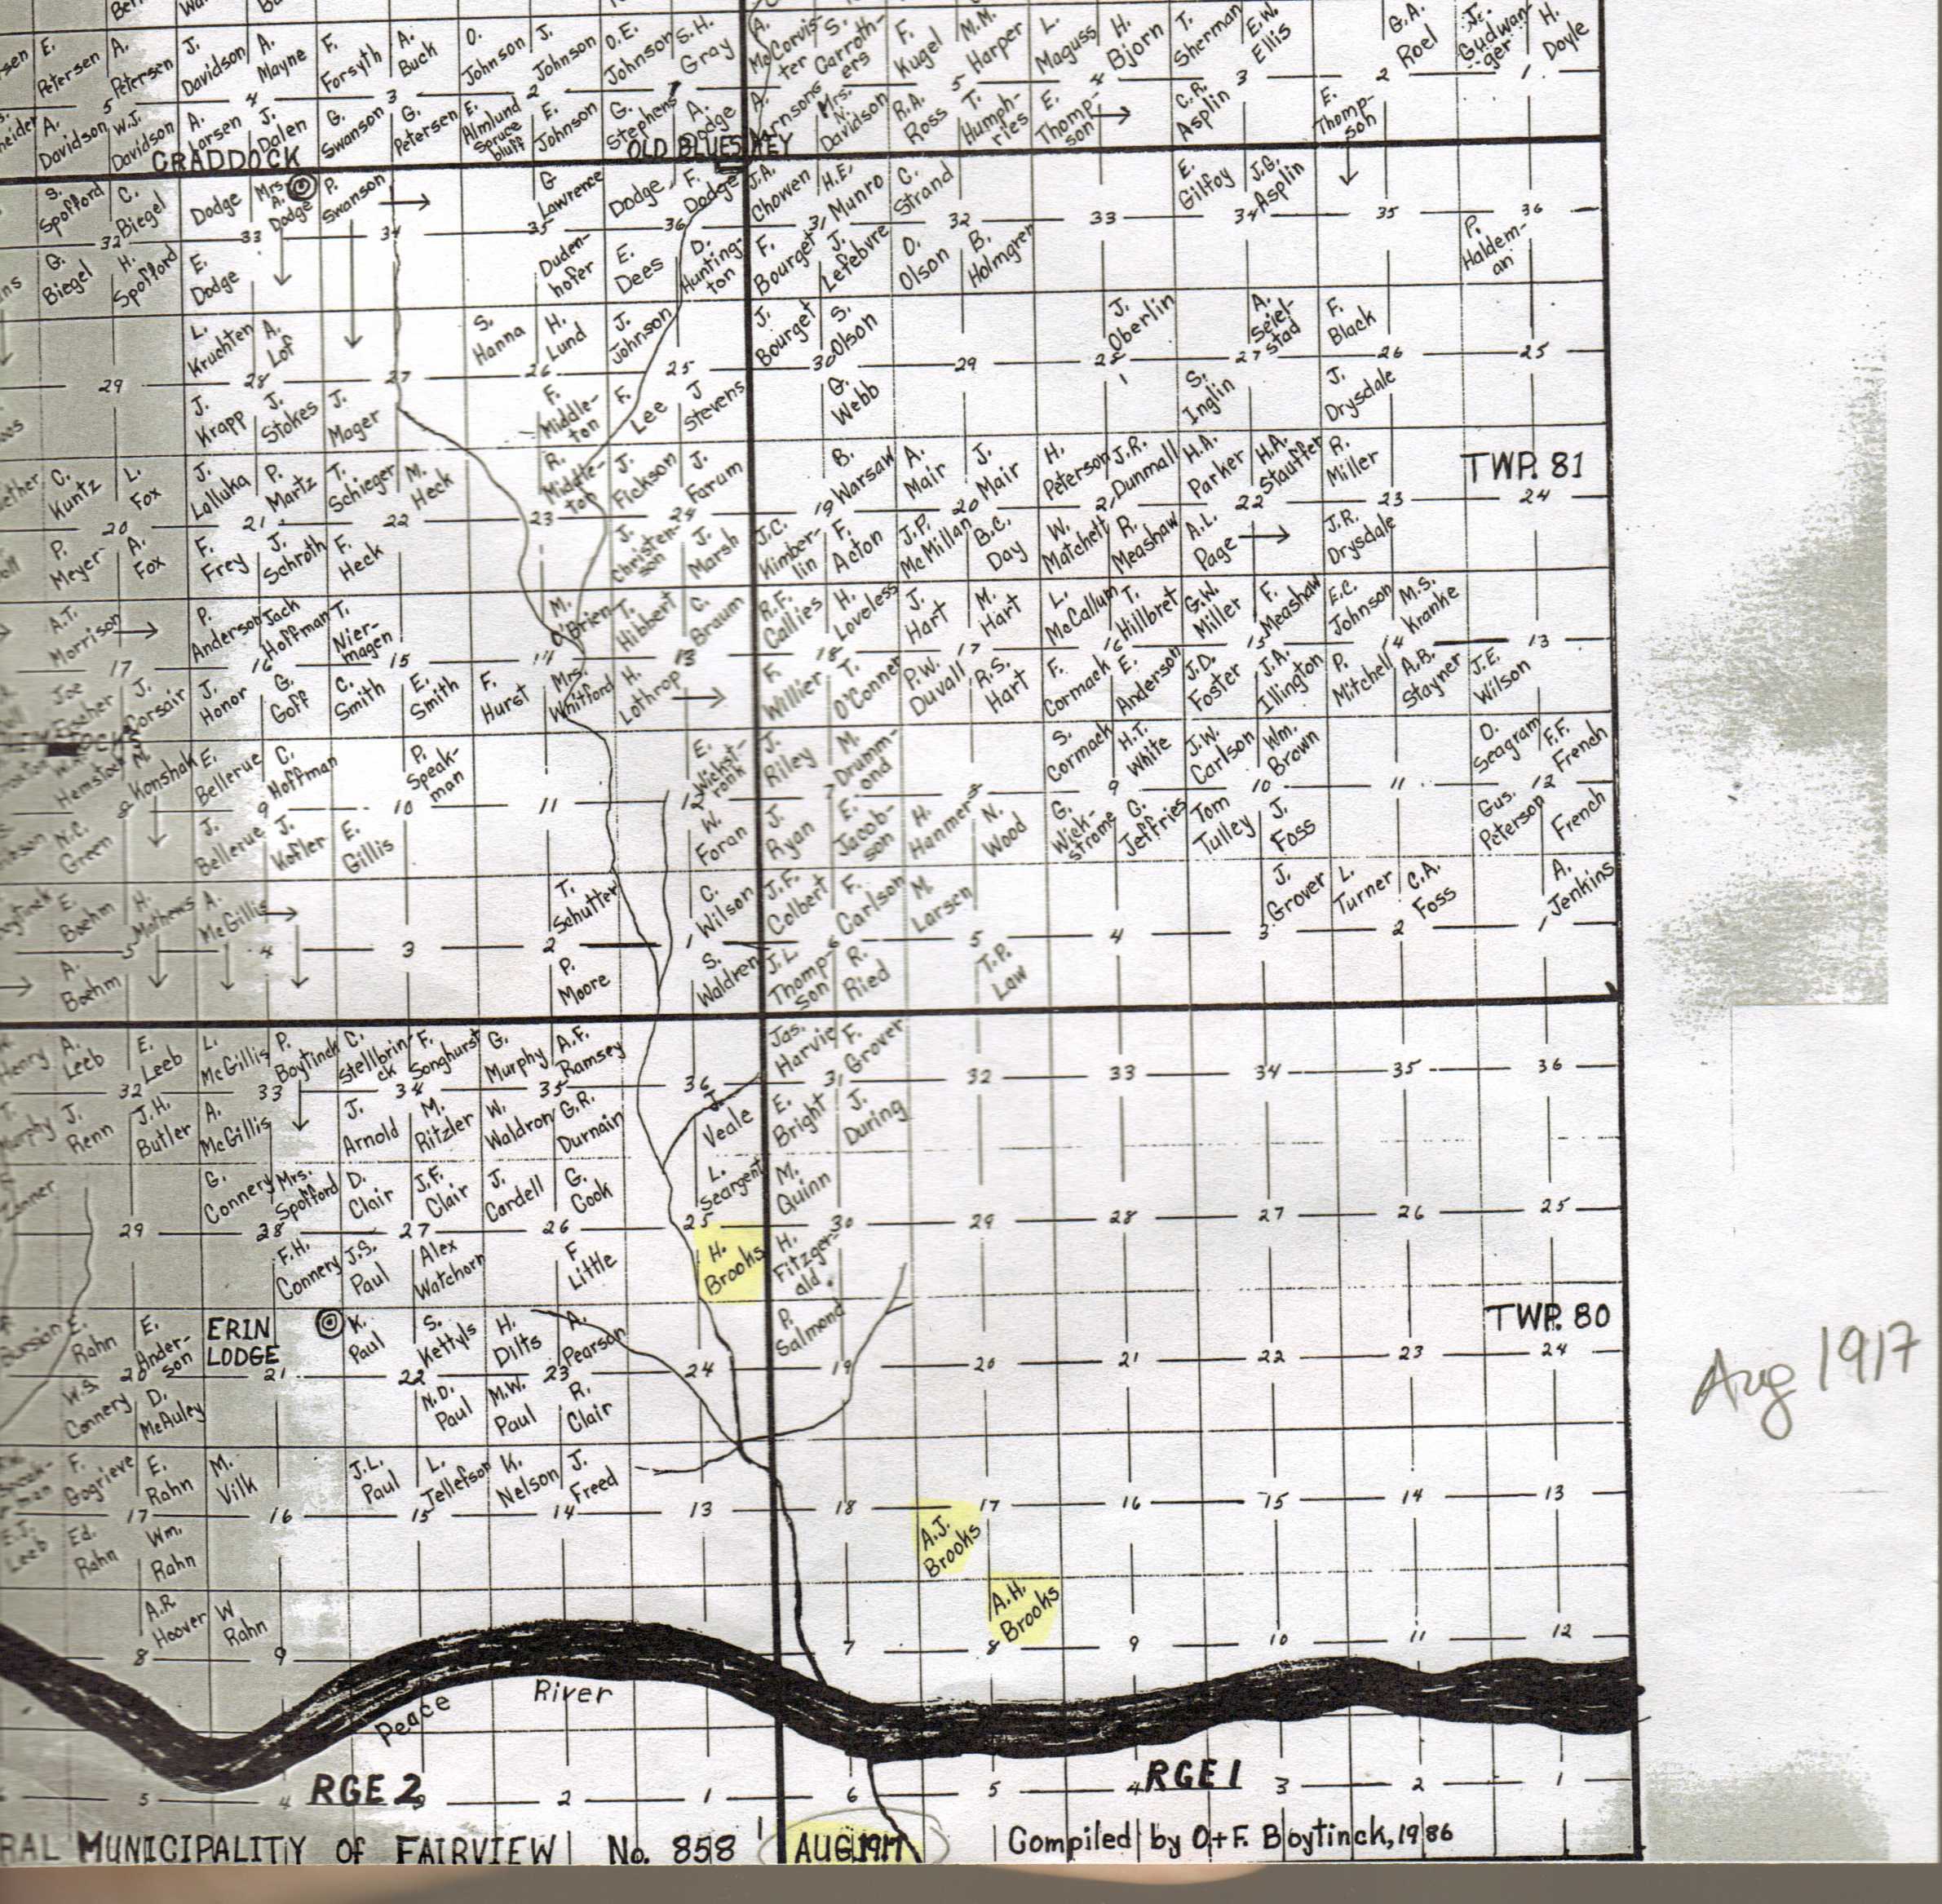 E. Petersen A. Petersen J. Davidson A. Mayne F. Forsyth A. Buck O. Johnson J. Johnson O.E. Johnson S.H. Gray A. McCorvister S. Carrothers F. Kugel M.M. Harper L. Maguss H. Bjorn T. Sherman E.W. Ellis G.A. Roel J. Gudwanger H. Doyle
5 4 3 2 1 5 4 3 2 1
A. Davidson W.J. Davidson A. Larsen J. Dalen G. Swanson G. Petersen E. Almlund Spruce bluff E. Johnson G. Stephens A. Dodge A. Arnsons Mrs. N. Davidson R.A. Ross T. Humphries E. Thompson C.R. Asplin E. Thompson
CRADDOCK OLD BLUESKEY
S. Spofford C. Biegel Dodge Mrs. A. Dodge P. Swanson G. Lawrence Dodge F. Dodge J.A. Chowen H.E. Munro C. Strand E. Gilfoy J.G. Asplin
32 33 34 35 36 31 32 33 34 35 36
G. Biegel H. Spofford E. Dodge Dudenhofer E. Dees D. Huntington F. Bourget J. Lefebvre O. Olson B. Holmgren P. Haldeman
L. Kruchten A. Lof S. Hanna H. Lund J. Johnson J. Bourget S. Olson J. Oberlin A. Seielstad F. Black
29 28 27 26 25 30 29 28 27 26 25
J. Krapp J. Stokes J. Mager F. Middleton F. Lee J Stevens G. Webb S. Inglin J. Drysdale
C. Kuntz L. Fox J. Lalluka P. Martz T. Schieger M. Heck R. Middleton J. Fickson J. Farum B. Warsaw A. Mair J. Mair H. Peterson J.R. Dunmall H.A. Parker H.A. Stauffer R. Miller TWP. 81
20 21 22 23 24 19 20 21 22 23 24
P. Meyer A. Fox F. Frey J. Schroth F. Heck J. Christenson J. Marsh J.C. Kimberlin F. Acton J.P. McMillan B.C. Day W. Matchett R. Meashaw A.L. Page J.R. Drysdale
A.T. Morrison P. Anderson Jack Hoffman T. Niermagen M. O'Brien T. Hibbert C. Braum R.F. Callies H. Loveless J. Hart M. Hart L. McCallum T. Hillbret G.W. Miller F. Meashaw E.C. Johnson M.S. Kranke
17 16 15 14 13 18 17 16 15 14 13
Joe Fischer J. Corsair J. Honor G. Goff C. Smith E. Smith F. Hurst Mrs. Whitford H. Lothrop F. Willier T. O'Conner P.W. Duvall R.S. Hart F. Cormack E. Anderson J.D. Foster J.A. Illington P. Mitchell A.B. Stayner J.E. Wilson
M. Konshak E. Bellerue C. Hoffman P. Speakman E. Wickstronk J. Riley M. Drummond S. Cormack H.T. White J.W. Carlson Wm. Brown O. Seagram F.F. French
8 9 10 11 12 7 8 9 10 11 12
N.C. Green J. Bellerue J. Kofler E. Gillis W. Foran J. Ryan E. Jacobson H. Hanmer N. Wood G. Wickstrome G. Jeffries Tom Tulley J. Foss Gus. Peterson French
E. Boehm H. Mathews A. McGillis T. Schutter C. Wilson J.F. Colbert F. Carlson M. Larsen J. Grover L. Turner C.A. Foss A. Jenkins
5 4 3 2 1 6 5 4 3 2 1
A. Boehm P. Moore S. Waldren J.L. Thompson R. Ried T.P. Law
Henry A. Leeb E. Leeb L. McGillis P. Boytinck C. Stellbrinck F. Songhurst G. Murphy A.F. Ramsey Jas. Harvie F. Grover
32 33 34 35 36 31 32 33 34 35 36
Murphy J. Renn J.H. Butler A. McGillis J. Arnold M. Ritzler W. Waldron G.R. Durnain J. Veale E. Bright J. During
G. Connery Mrs. Spofford D. Clair J.F. Clair J. Cardell G. Cook L. Seargent M. Quinn
29 28 27 26 25 30 29 28 27 26 25
F.H. Connery J.S. Paul Alex Watchorn F. Little H. Brooks H. Fitzgerald
E. Rahn E. Anderson ERIN LODGE K. Paul S. Kettyls H. Dilts A. Pearson P. Salmond TWP. 80
20 21 22 23 24 19 20 21 22 23 24
W.S. Connery D. McAuley N.D. Paul M.W. Paul R. Clair
Aug 1917
F. Gogrieve E. Rahn M. Vilk J.L. Paul L. Tellefson K. Nelson J. Freed
17 16 15 14 13 18 17 16 15 14 13
E.J. Leeb Ed. Rahn Wm. Rahn A.J. Brooks
A.R Hoover W Rahn A.H. Brooks
8 9 7 8 9 10 11 12
Peace River
RGE 2 RGE 1
5 4 3 2 1 6 5 4 3 2 1
RAL MUNICIPALITY of FAIRVIEW No. 858 AUG.1917 Compiled by O+F. Boytinck, 1986